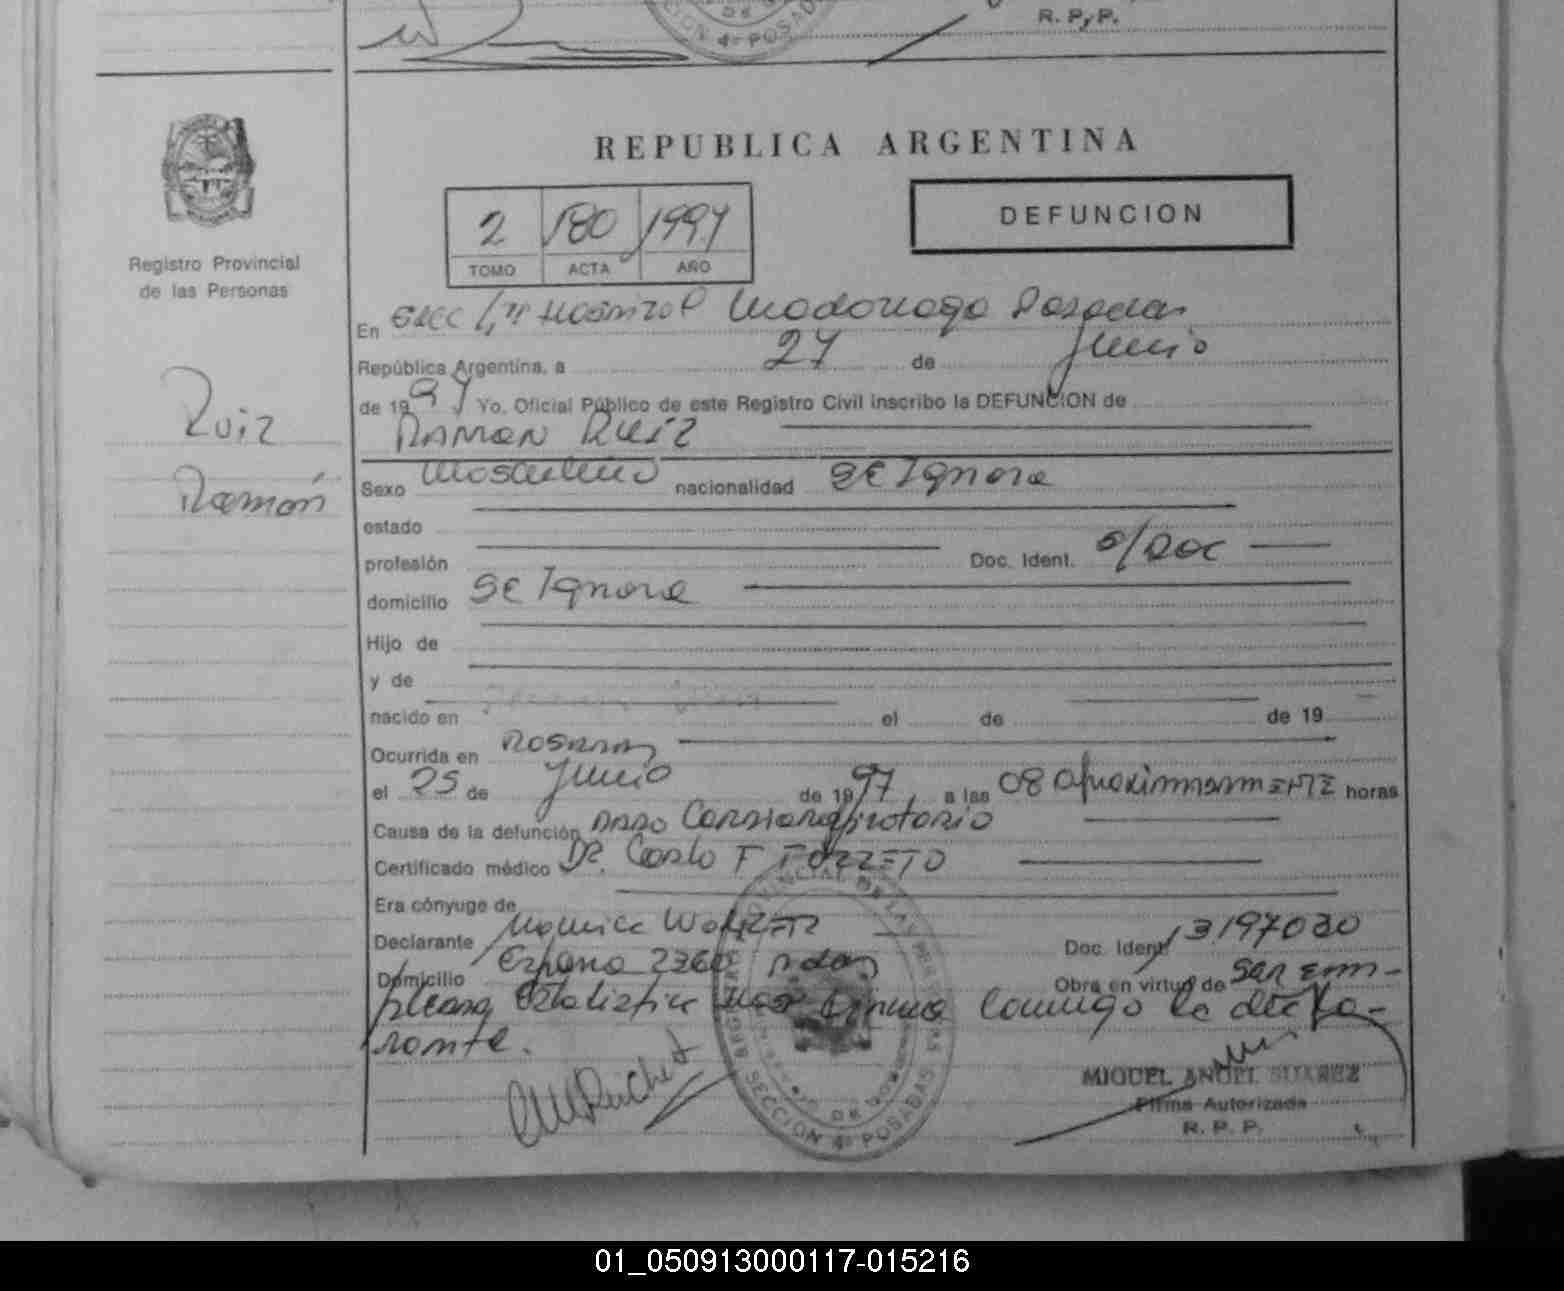 DE
CION 4ª POSADAS
R. P. P.
REPUBLICA ARGENTINA
2 180 1997
TOMO ACTA AÑO
DEFUNCION
Registro Provincial
de las Personas
En Secc 4ª Hospital Madariaga Posadas
República Argentina, a 27 de Junio
de 1997 Yo, Oficial Público de este Registro Civil inscribo la DEFUNCION de
Ramon Ruiz
Ruiz
Ramón
Sexo Masculino nacionalidad Se Ignora
estado
profesión Doc. Ident. S/Doc
domicilio Se Ignora
Hijo de
y de
nacido en el de de 19
Ocurrida en Posadas
el 25 de Junio de 1997, a las 08 Aproximadamente horas
Causa de la defunción Paro Cardiorespiratorio
Certificado médico Dr. Carlo F
Era cónyuge de
Declarante Monica
Doc. Ident. 13197030
Domicilio España 2260 Pdas
Obra en virtud de Ser Em-
pleada Estadistica Hos Firma Conmigo la decla-
rante.
REGISTRO PROVINCIAL DE LAS PERSONAS
SECCION 4ª POSADAS
MIGUEL ANGEL SUAREZ
Firma Autorizada
R. P. P.
01_050913000117-015216